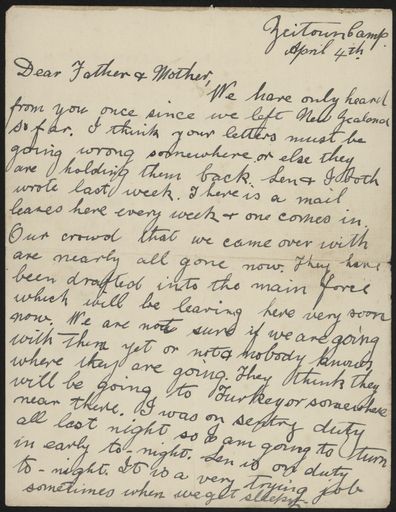 Zeitoun Camp.
April 4th.
Dear Father & Mother,
We have only heard
from you once since we left New Zealand
so far. I think your letters must be
going wrong somewhere or else they
are holding them back. Len & I both
wrote last week. There is a mail
leaves here every week & one comes in.
Our crowd that we came over with
are nearly all gone now. They have
been drafted into the main force
which will be leaving here very soon
now. We are not sure if we are going
with them yet or not & nobody knows
where they are going. They think they
will be going to Turkey or somewhere
near there. I was on sentry duty
all last night so I am going to turn
in early to-night. Len is on duty
to-night. It is a very trying job
sometimes when we get sleepy.